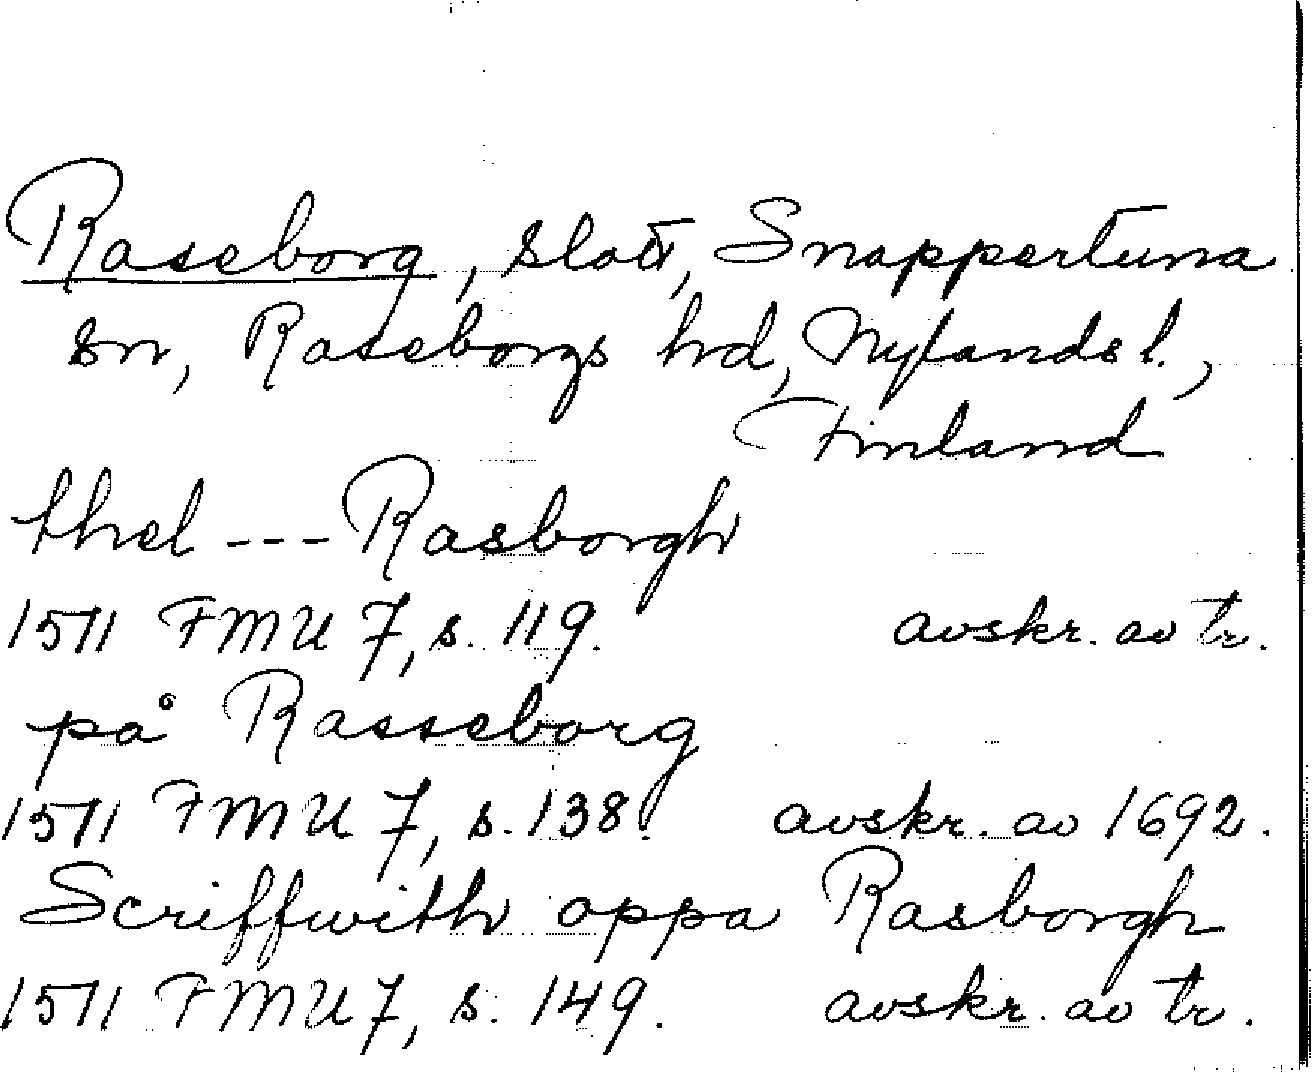 Raseborg, slott, Snappertuna
sn, Raseborgs hrd, Nylands l.,
Finland
thel --- Rasborgh
1511 FMU 7, s. 119. avskr. av tr.
på Rasseborg
1511 FMU 7, s. 138. avskr. av 1692.
Scriffwith oppa Rasborgh
1511 FMU 7, s. 149. avskr. av tr.